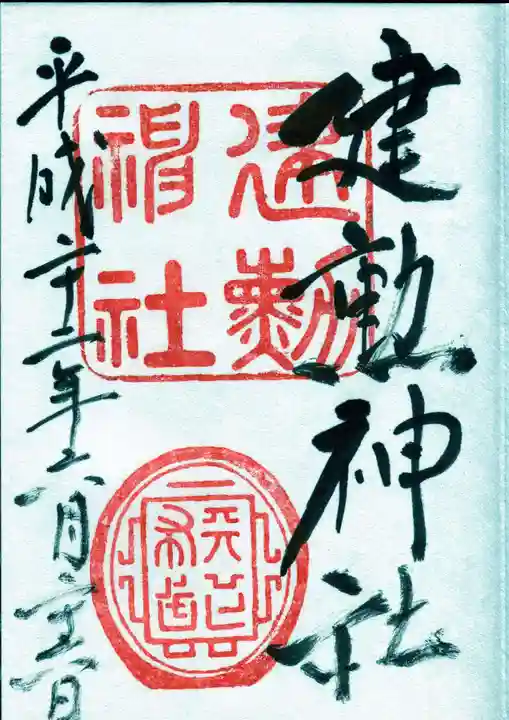 建勲神社
建勲
神社
平成二十二年六月二十六日